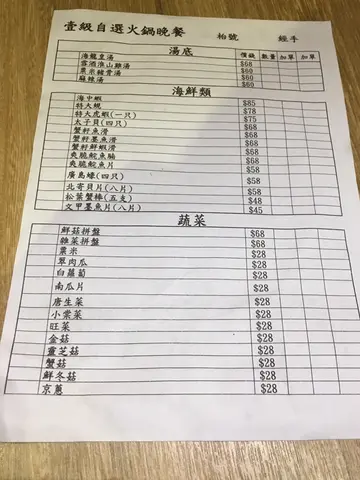 壹級自選火鍋晚餐 枱號 經手
湯底 價錢 數量 加單 加單
海龍皇湯 $68
露酒淮山雞湯 $60
粟米豬骨湯 $60
麻辣湯 $60
海鮮類
海中蝦 $85
特大蜆 $78
特大虎蝦(一只) $75
太子貝(四只) $68
蟹籽魚滑
蟹籽墨魚滑
蟹籽鮮蝦滑
爽脆鯇魚腩
爽脆鯇魚片 $58
廣島蠔(四只) $58
北寄貝片(八片) $58
松葉蟹棒(五支) $48
文甲墨魚片(八片) $45
蔬菜
鮮菇拼盤 $68
雜菜拼盤 $68
粟米 $28
翠肉瓜 $28
白蘿蔔 $28
南瓜片 $28
唐生菜 $28
小棠菜 $28
旺菜 $28
金菇 $28
靈芝菇 $28
蟹菇 $28
鮮冬菇 $28
京蔥 $28